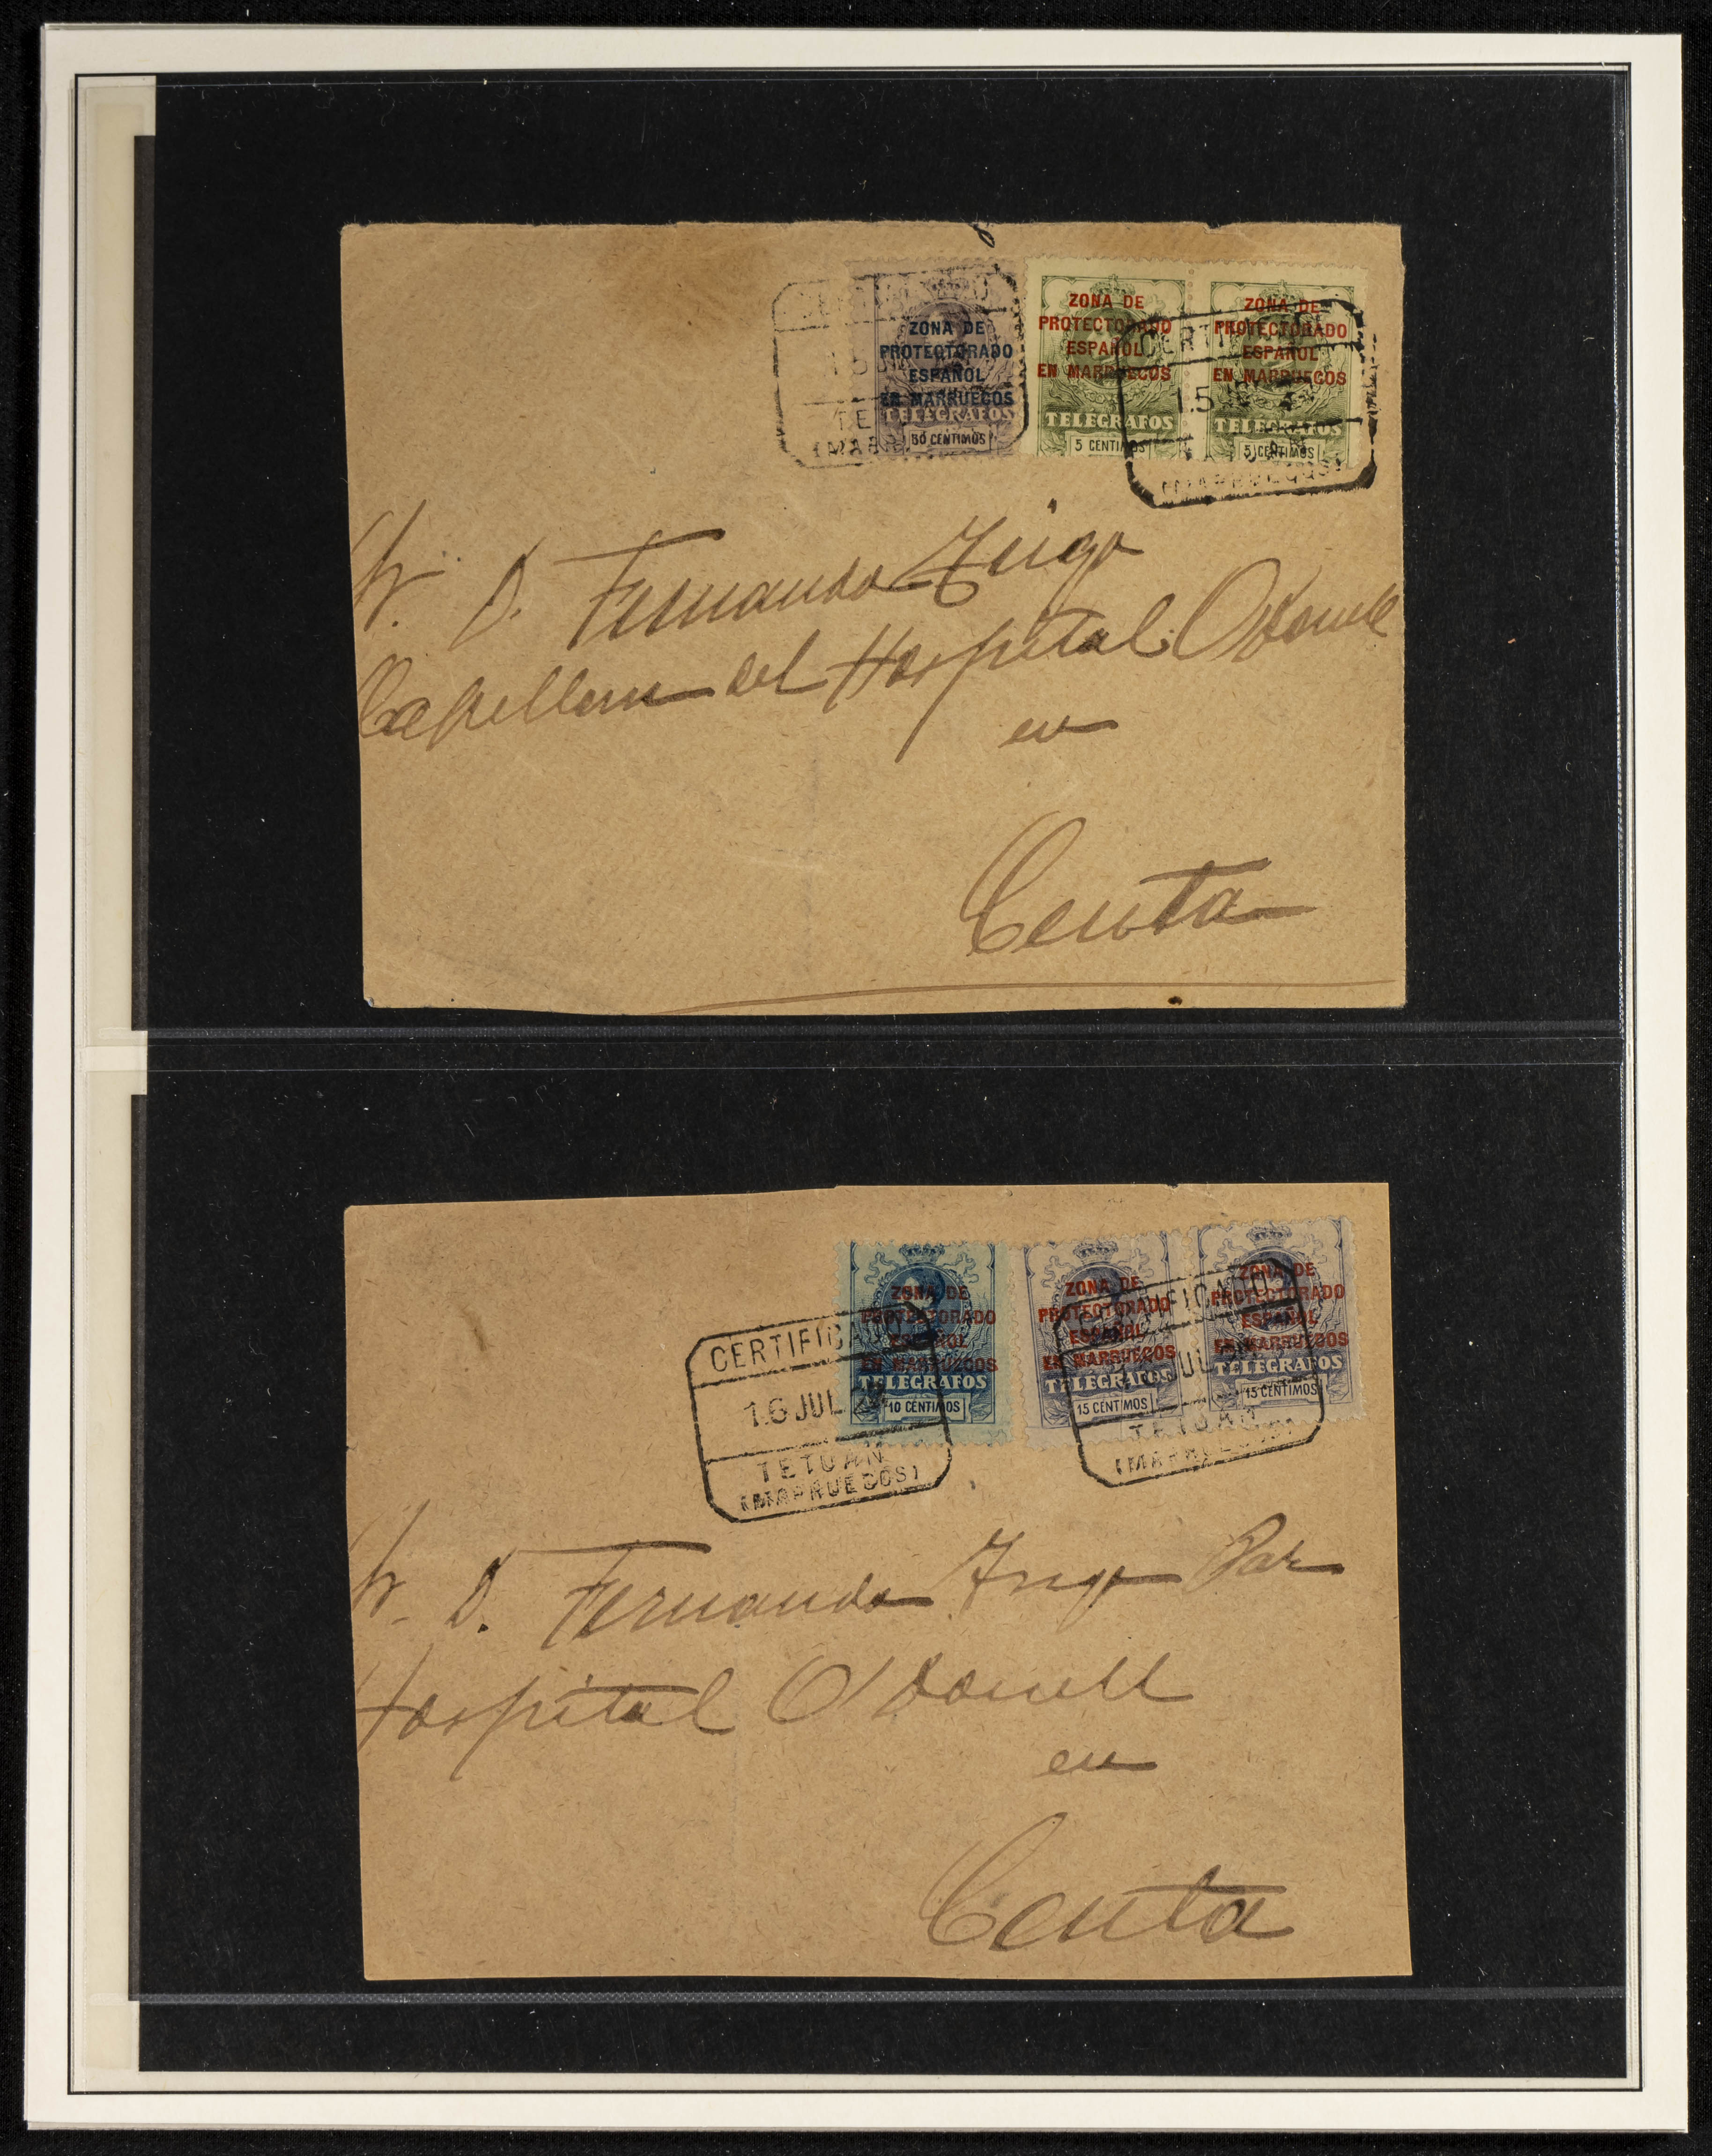 ZONA DE
PROTECTORADO
ESPAÑOL
EN MARRUECOS
TELÉGRAFOS
30 CENTIMOS
ZONA DE
PROTECTORADO
ESPAÑOL
EN MARRUECOS
TELÉGRAFOS
5 CENTIMOS
ZONA DE
PROTECTORADO
ESPAÑOL
EN MARRUECOS
TELÉGRAFOS
5 CENTIMOS
CERTI
15
(MARRUECOS)
Sr. D. Fernando
Capellan del Hospital Odonell
en
Ceuta
ZONA DE
PROTECTORADO
ESPAÑOL
EN MARRUECOS
TELÉGRAFOS
10 CENTIMOS
ZONA DE
PROTECTORADO
ESPAÑOL
EN MARRUECOS
TELÉGRAFOS
15 CENTIMOS
ZONA DE
PROTECTORADO
ESPAÑOL
EN MARRUECOS
TELÉGRAFOS
15 CENTIMOS
CERTIFICADO
16 JUL
TETUAN
(MARRUECOS)
CERTIFICADO
JUL
TETUAN
(MARRUECOS)
Sr. D. Fernando
Hospital O'donell
en
Ceuta